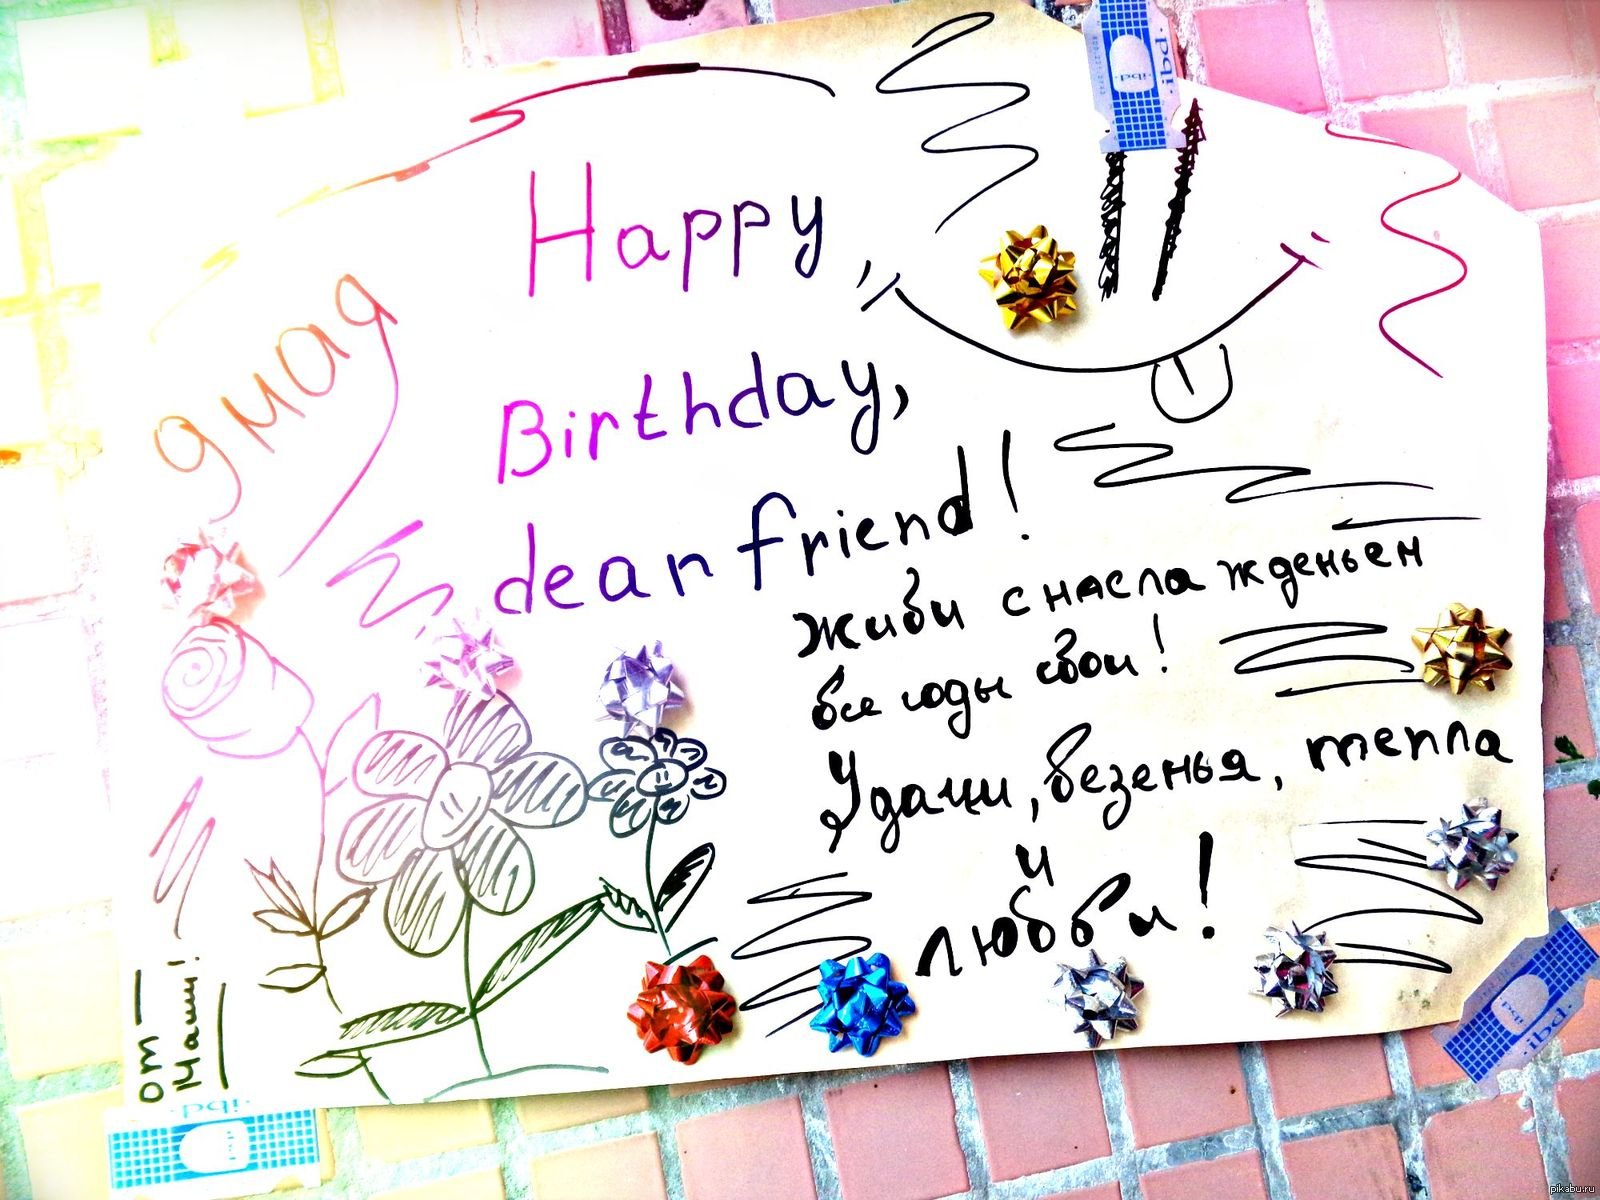 9 мая
Happy
Birthday,
dear friend!
Живи с наслажденьем
все годы свои!
Удачи, везенья, тепла
и
любви!
от
Маши!
ibd
ibd
ibd
pikabu.ru